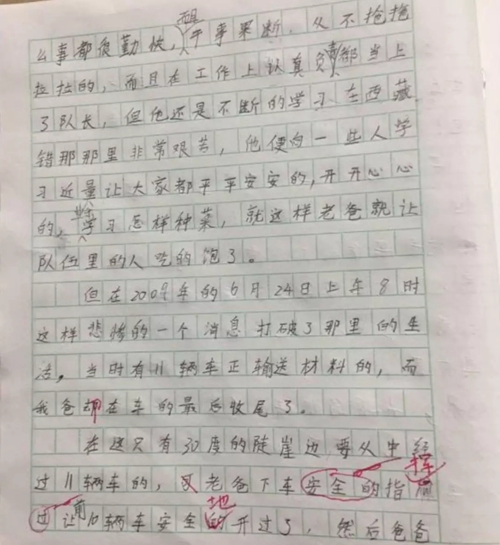 么事都很勤快,干事果断,从不拖拖
拉拉的,而且在工作上认真负都当上
了队长,但他还是不断的学习在西藏
错那那里非常艰苦,他便向一些人学
习近量让大家都平平安安的,开开心心
的,学习怎样种菜,就这样老爸就让
队伍里的人吃的饱了。
但在2009年的6月24日上午8时
这样悲惨的一个消息打破了那里的生
活。当时有11辆车正输送材料的,而
我爸却在车的最后收尾了。
在这只有30度的陡崖边要从中经
过11辆车的,老爸下车安全的指挥
过让前10辆车安全地的开过了,然后爸爸